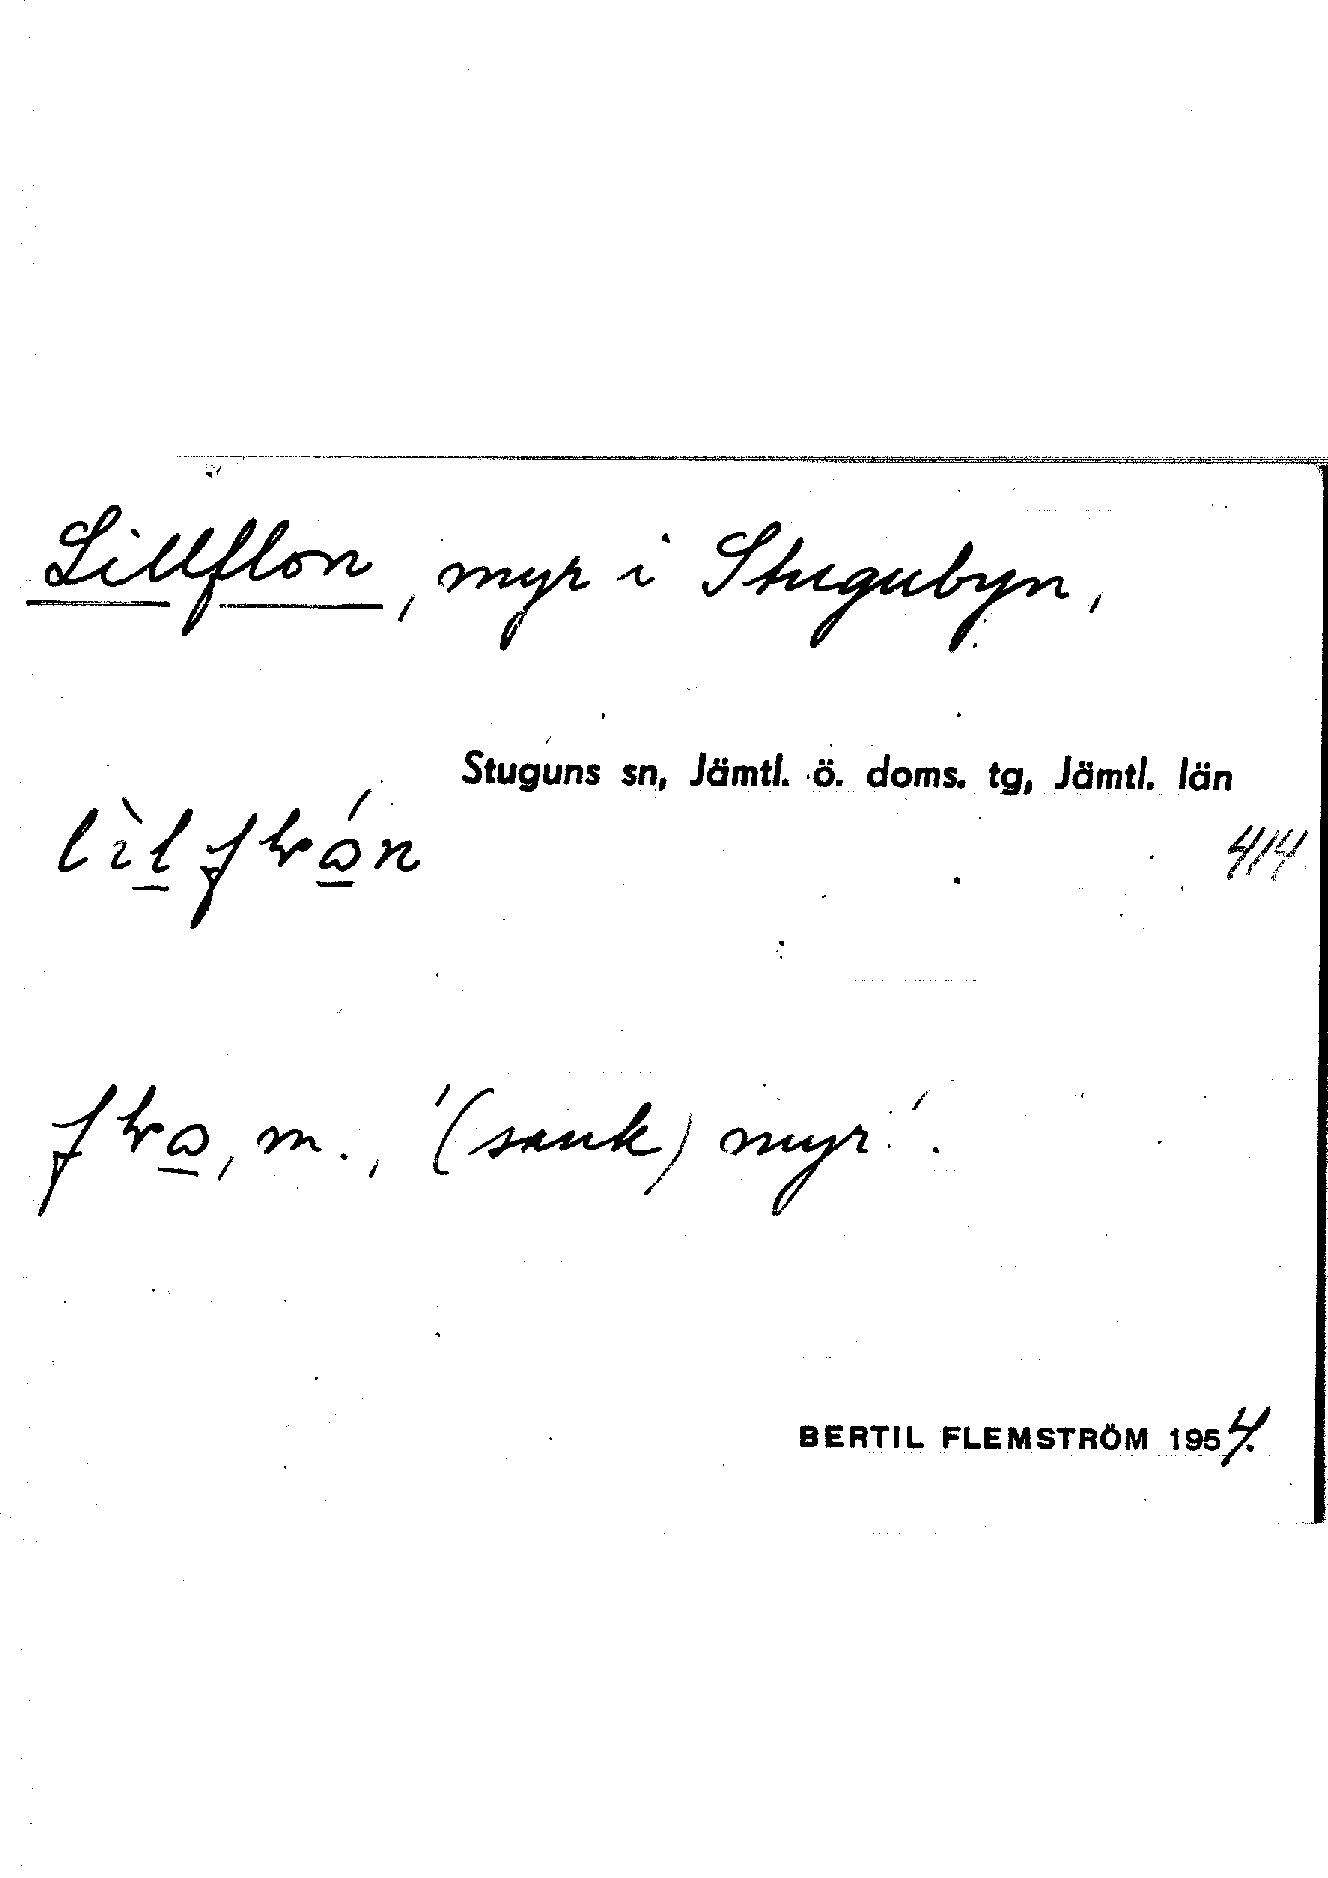 Lillflon, myr i Stugubyn,
Stuguns sn, Jämtl. ö. doms. tg, Jämtl. län
414
m., '(sank) myr'.
BERTIL FLEMSTRÖM 1954.